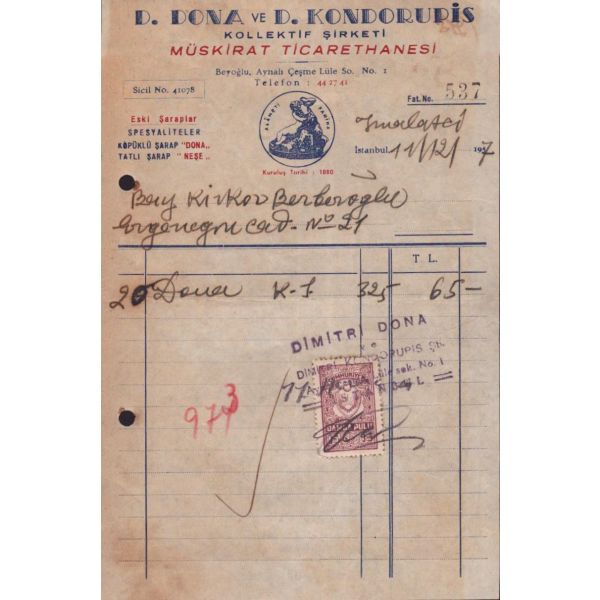 D. DONA VE D. KONDORUPİS
KOLLEKTİF ŞİRKETİ
MÜSKİRAT TİCARETHANESİ
Beyoğlu, Aynalı Çeşme Lüle So. No. 1
Telefon : 44 27 41
Sicil No. 41078
Fat. No. 537
Eski Şaraplar
SPESYALİTELER
KÖPÜKLÜ ŞARAP "DONA„
TATLI ŞARAP "NEŞE„
ALÂMETİ FARİKA
Kuruluş Tarihi : 1880
İmalatci
İstanbul, 11/12/1957
Bay Kirkor Berberoğlu
Ergenegon Cad. No 21
T. L.
20 Dona K-I 325 65-
DİMİTRİ DONA
ve
DİMİTRİ KONDORUPİS ŞK.
Lüle sok. No. 1
DAMGA PULU
973